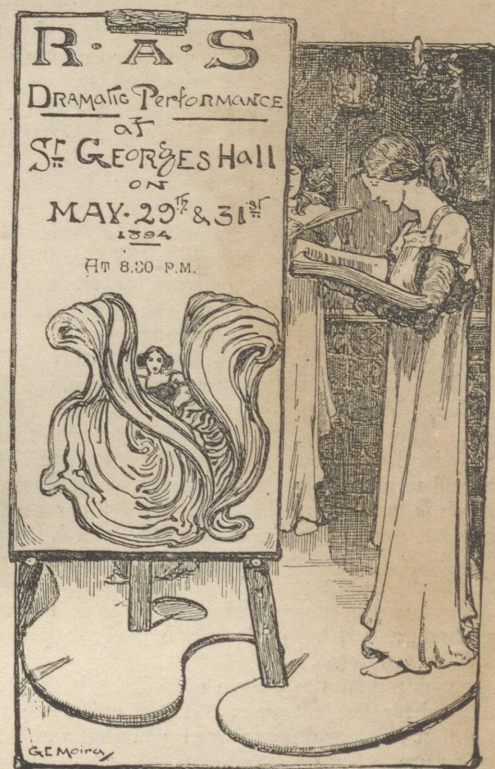 R · A · S
Dramatic Performance
at
St. Georges Hall
on
MAY · 29th & 31st
1894
At 8.30 P.M.
G E Moira